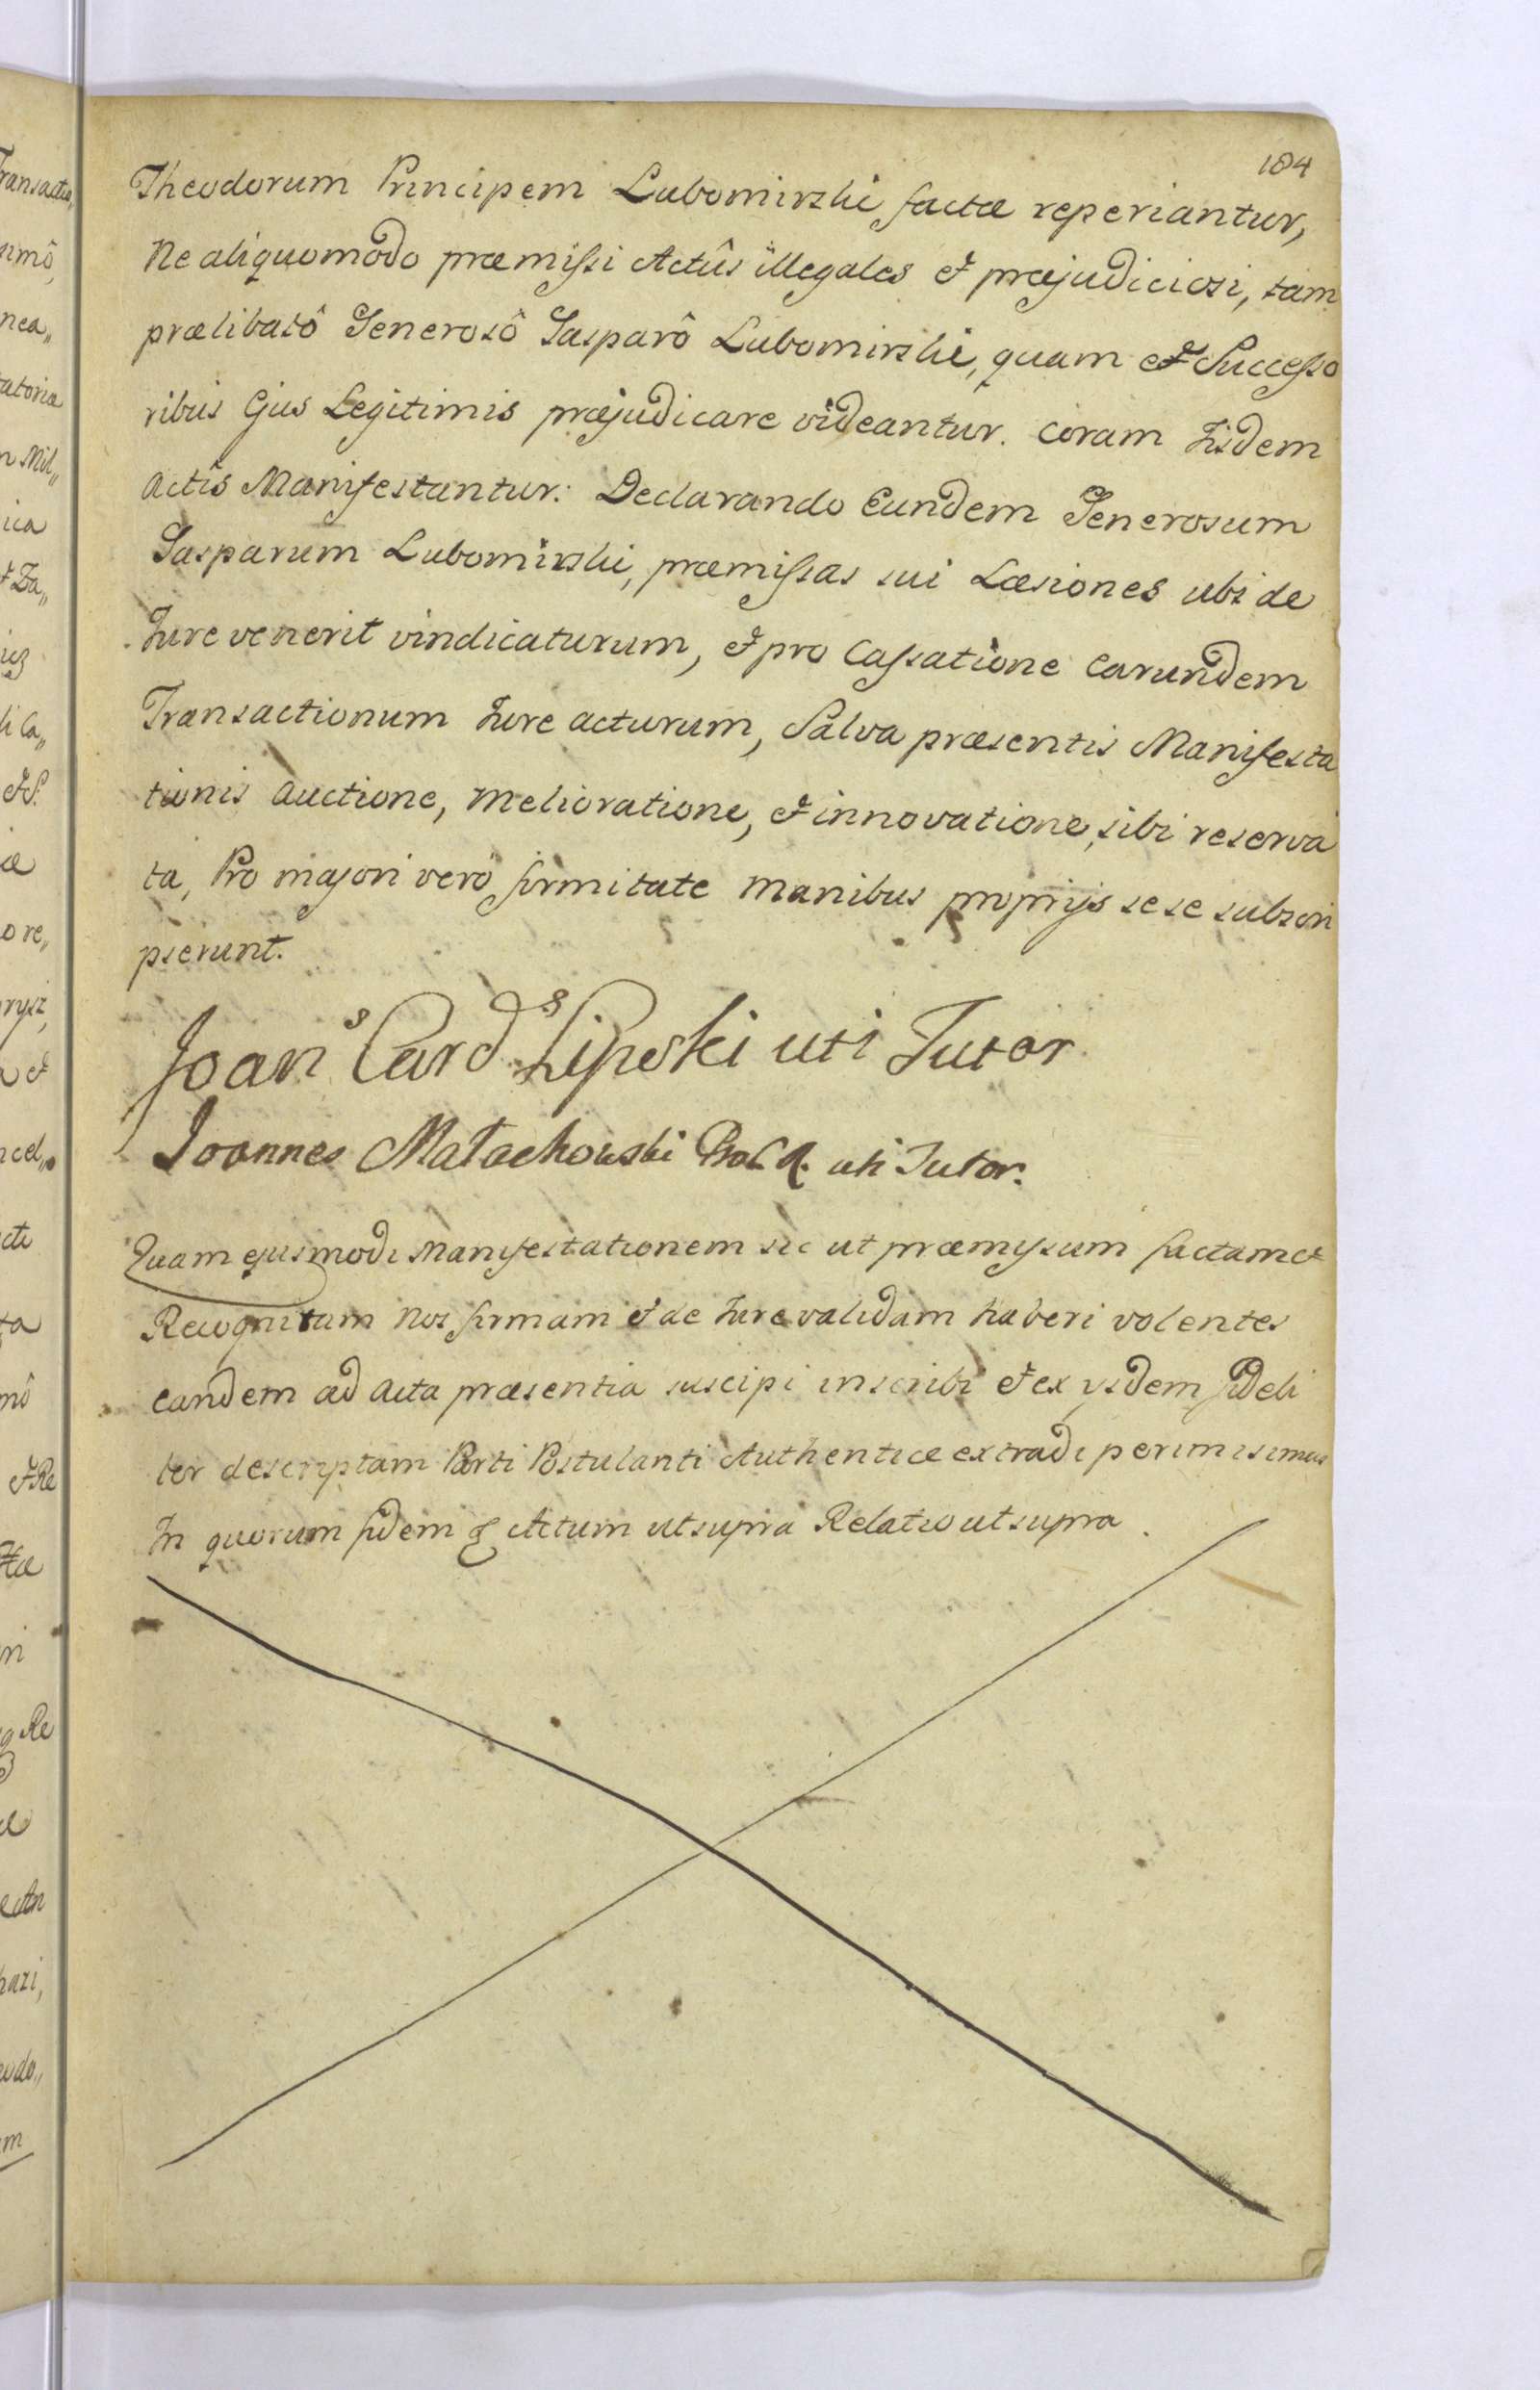 184
Theodorum Principem Lubomirski factæ reperiantur,
Ne aliquomodo præmissi Actûs illegales et præjudiciosi, tam
prælibatô Generosô Gasparô Lubomirski, quam et Successo
ribus Ejus Legitimis præjudicare videantur. Coram Iisdem
Actis Manifestantur: Declarando Eundem Generosum
Gasparum Lubomirski, præmissas sui Læsiones ubi de
Jure venerit vindicaturum, et pro Cassatione Earundem
Transactionum Jure acturum, Salva præsentis Manifesta
tionis Auctione, Melioratione, et innovatione, sibi reserva
ta, Pro majori verò firmitate Manibus proprijs sese subscri
pserunt.
Joan s Card s Lipski uti Tutor
Joannes Małachowski uti Tutor.
Quam ejusmodi Manifestationem sic ut præmissum factam et
Recognitam Nos firmam et de Jure validam haberi volentes
eandem ad Acta præsentia suscipi inscribi et ex ysdem fideli
ter descriptam Parti Postulanti Authentice extradi perimisimus
In quorum fidem Actum ut supra Relatio ut supra